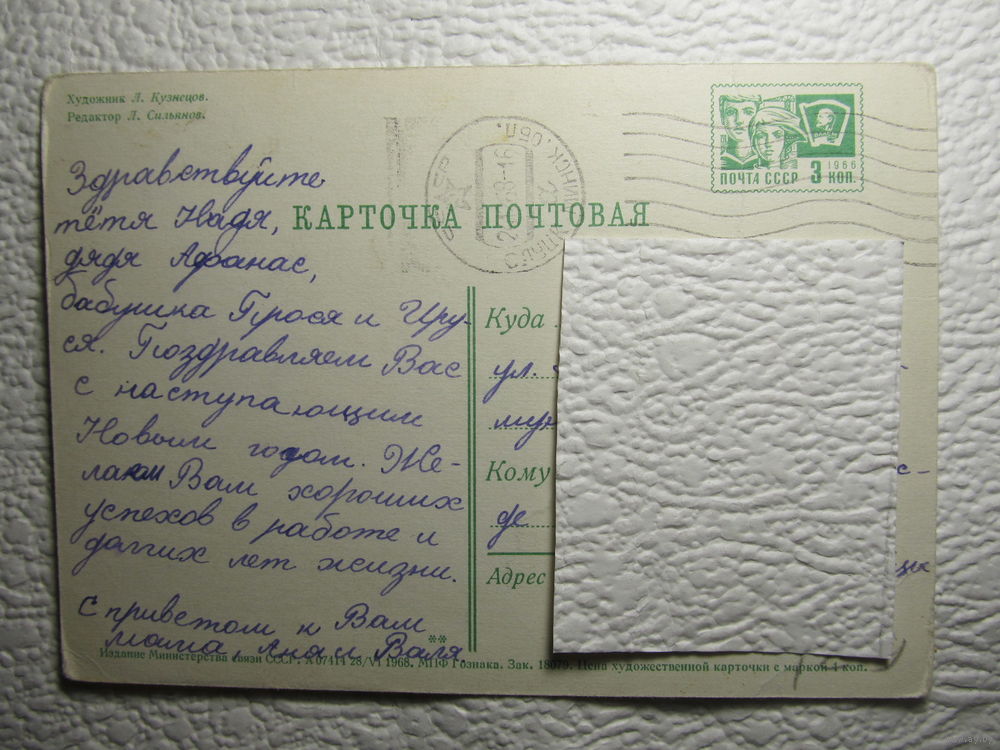 Художник Л. Кузнецов.
Редактор Л. Сильянов.
1966
ПОЧТА СССР 3 КОП.
КАРТОЧКА ПОЧТОВАЯ
Здравствуйте
тётя Надя,
дядя Афанас,
бабушка Прося и Иру-
ся. Поздравляем Вас
с наступающим
Новым годом. Же-
лаем Вам хороших
успехов в работе и
долгих лет жизни.
С приветом к Вам
мама, Аня и Валя.
Куда
ул.
Кому
де
Адрес
**
Издание Министерства связи СССР. А 07414 28/VI 1968. МПФ Гознака. Зак. 18079. Цена художественной карточки с маркой 4 коп.